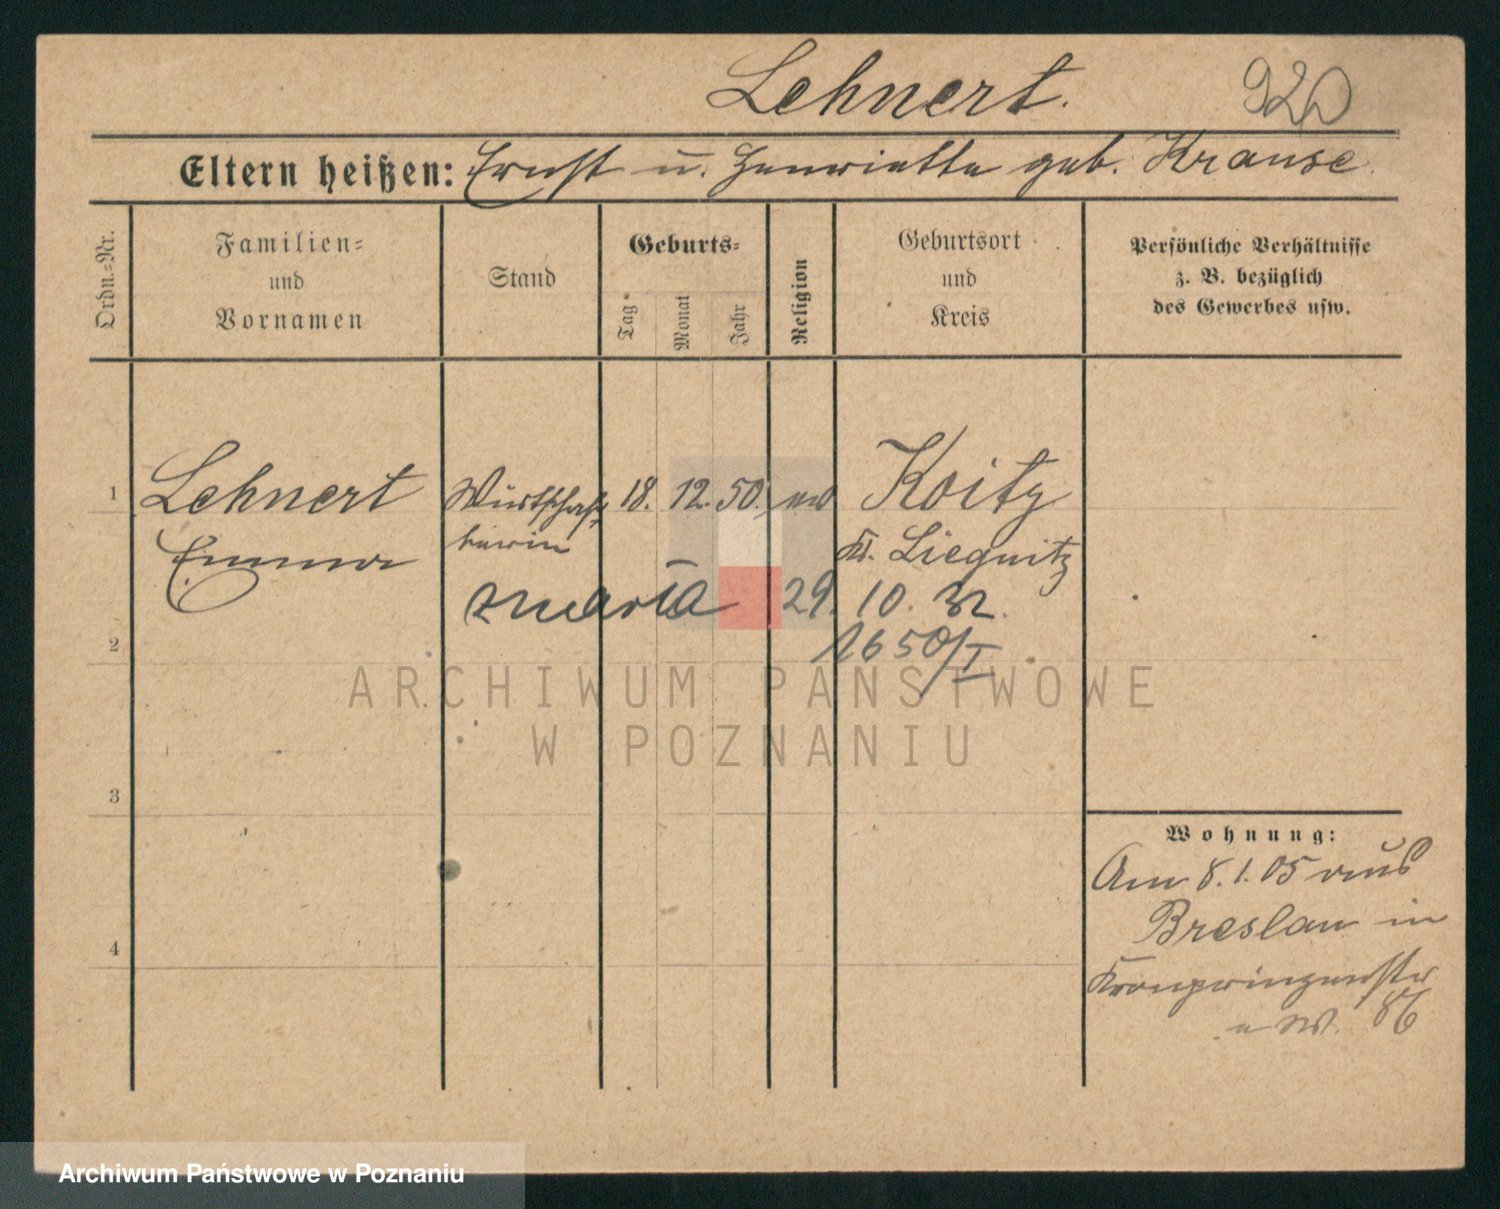 Lehnert. 920
Eltern heißen: Ernst u. Henriette geb. Krause
Ordn.=Nr.
Familien=
und
Vornamen
Stand
Geburts=
Tag
Monat
Jahr
Religion
Geburtsort
und
Kreis
Persönliche Verhältnisse
z. B. bezüglich
des Gewerbes usw.
1 Lehnert Wirtschaf 18. 12. 50. ev Koitz
Emma terin Kr. Liegnitz
29. 10. 32.
1650/I
2
3
4
ARCHIWUM PAŃSTWOWE
W POZNANIU
Wohnung:
Am 8.1.05 aus
Breslau in
Kronprinzenstr
86
Archiwum Państwowe w Poznaniu